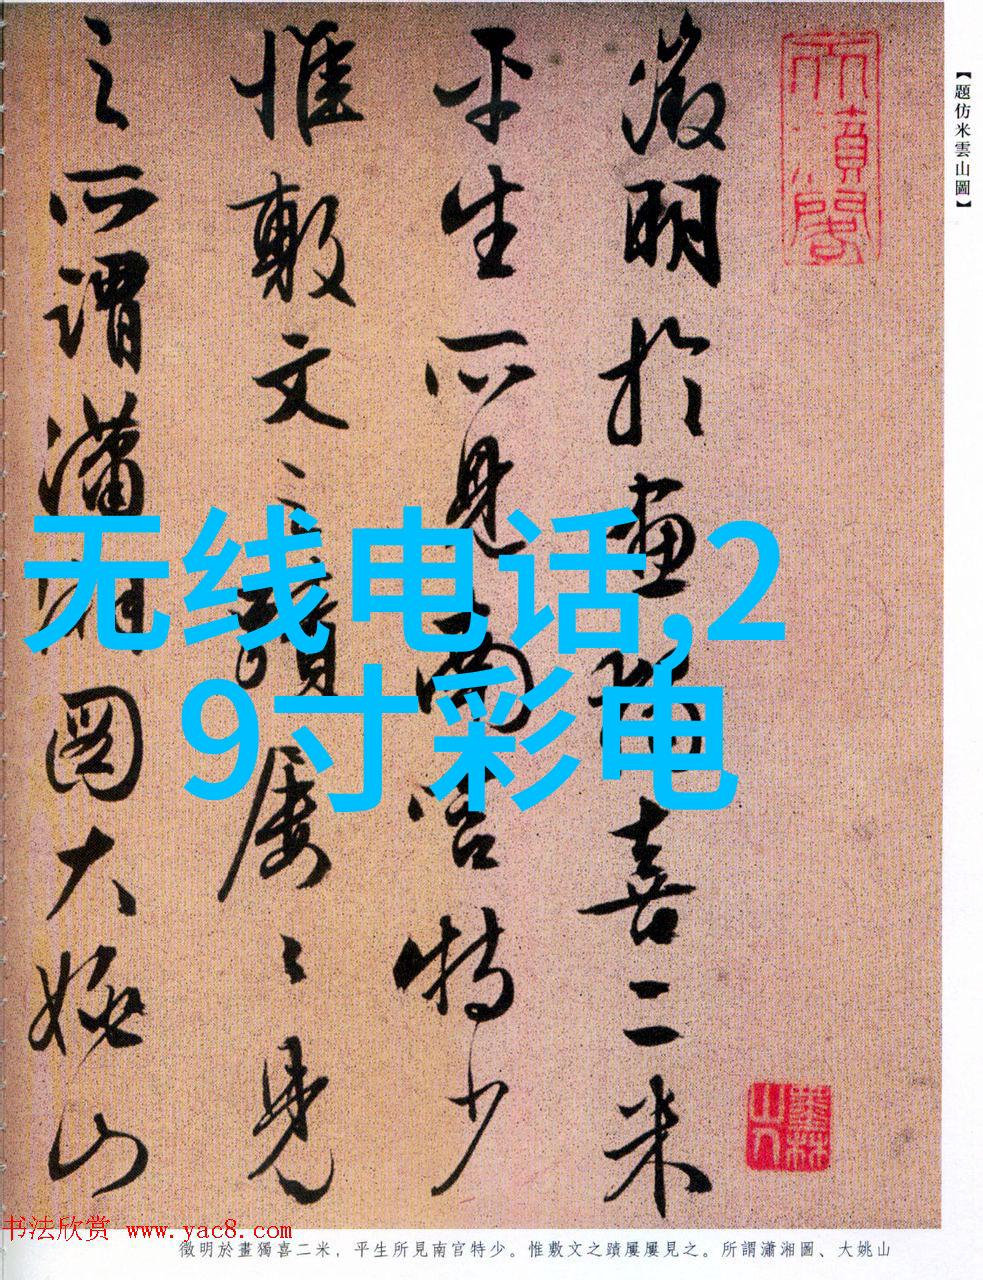 【題仿米雲山圖】
徵明於畫獨喜二米
平生所見南宮特少
惟敷文之蹟屢〻見
之所謂瀟湘圖大姚山
无线电话,2
9寸彩电
墨林
山人
书法欣赏 www.yac8.com
徵明於畫獨喜二米，平生所見南宫特少。惟敷文之蹟屢屢見之。所謂瀟湘圖、大姚山